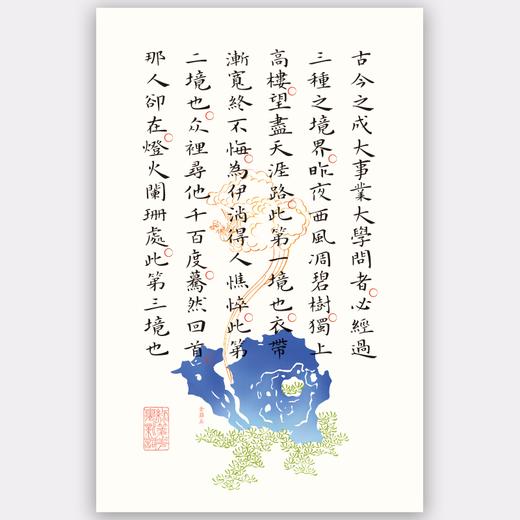 古今之成大事業大學問者必經過
三種之境界昨夜西風凋碧樹獨上
高樓望盡天涯路此第一境也衣帶
漸寬終不悔為伊消得人憔悴此第
二境也众裡尋他千百度驀然回首
那人卻在燈火闌珊處此第三境也